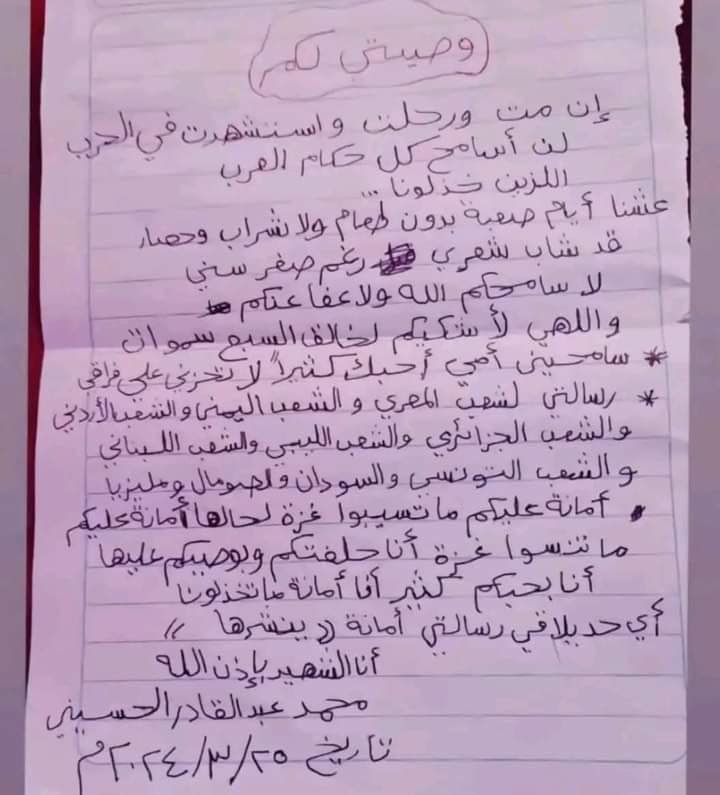 وصيتي لكم
إن مت ورحلت واستشهدت في الحرب
لن أسامح كل حكام العرب
اللزين خذلونا ...
عشنا أيام صعبة بدون طعام ولا شراب وحصار
قد شاب شعري رغم صغر سني
لا سامحكم الله ولا عفا عنكم
واللهي لأشكيكم لخالق السبع سموات
* سامحيني أمي أحبك كثيراً لا تحزني علي فراقي
* رسالتي لشعب المصري والشعب اليمني والشعب الأردني
والشعب الجزائري والشعب الليبي والشعب اللبناني
والشعب التونسي والسودان ولصومال ومليزيا
أمانة عليكم ما تسيبوا غزة لحالها أمانة عليكم
ما تنسوا غزة أنا حلفتكم وبوصيكم عليها
أنا بحبكم كثير أنا أمانة ما تخذلونا
أي حد يلاقي رسالتي أمانة (( ينشرها ))
أنا الشهيد بإذن الله
محمد عبد القادر الحسيني
تاريخ ٢٥/٣/٢٠٢٤م